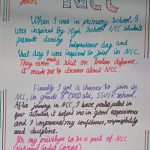 NCC
When I was in primary school, I
was inspired by High School NCC students
parade during Independence day and
that day I was inspired to join in NCC.
They even a skit on Indian defence,
it made me to dream about NCC.
Finally I got a chance to join
in NCC, in grade 8
After joining in NCC, I have participated in
activities, it helped me in good experience
and I improved my confidence, responsibility
and discipline.
privilege to be a part of NCC